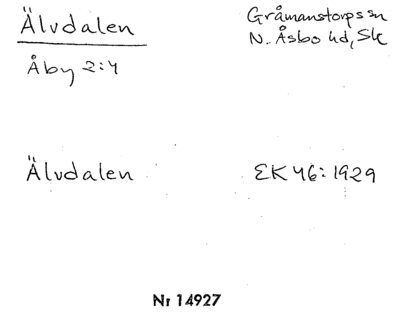 Älvdalen
Gråmanstorps sn
N. Åsbo hd, Sk
Åby 2:4
Älvdalen
EK 46:1929
Nr 14927